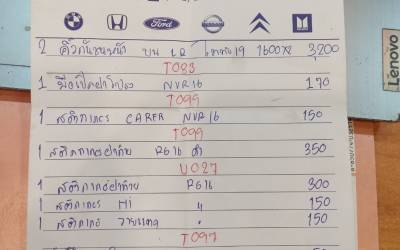 Ford NISSAN
2 คิ้วกันชนหน้า บน LR 19 1600x2 3,200
T083
1 มือเปิดฝาท้าย NVR16 170
T099
1 สติกเกอร์ CARER NVR16 150
T099
1 สติกเกอร์ฝาท้าย RG16 ดำ 350
U027
1 สติกเกอร์ฝาท้าย RG16 300
1 สติกเกอร์ Hi " 150
1 สติกเกอร์ " 150
T097
Lenovo